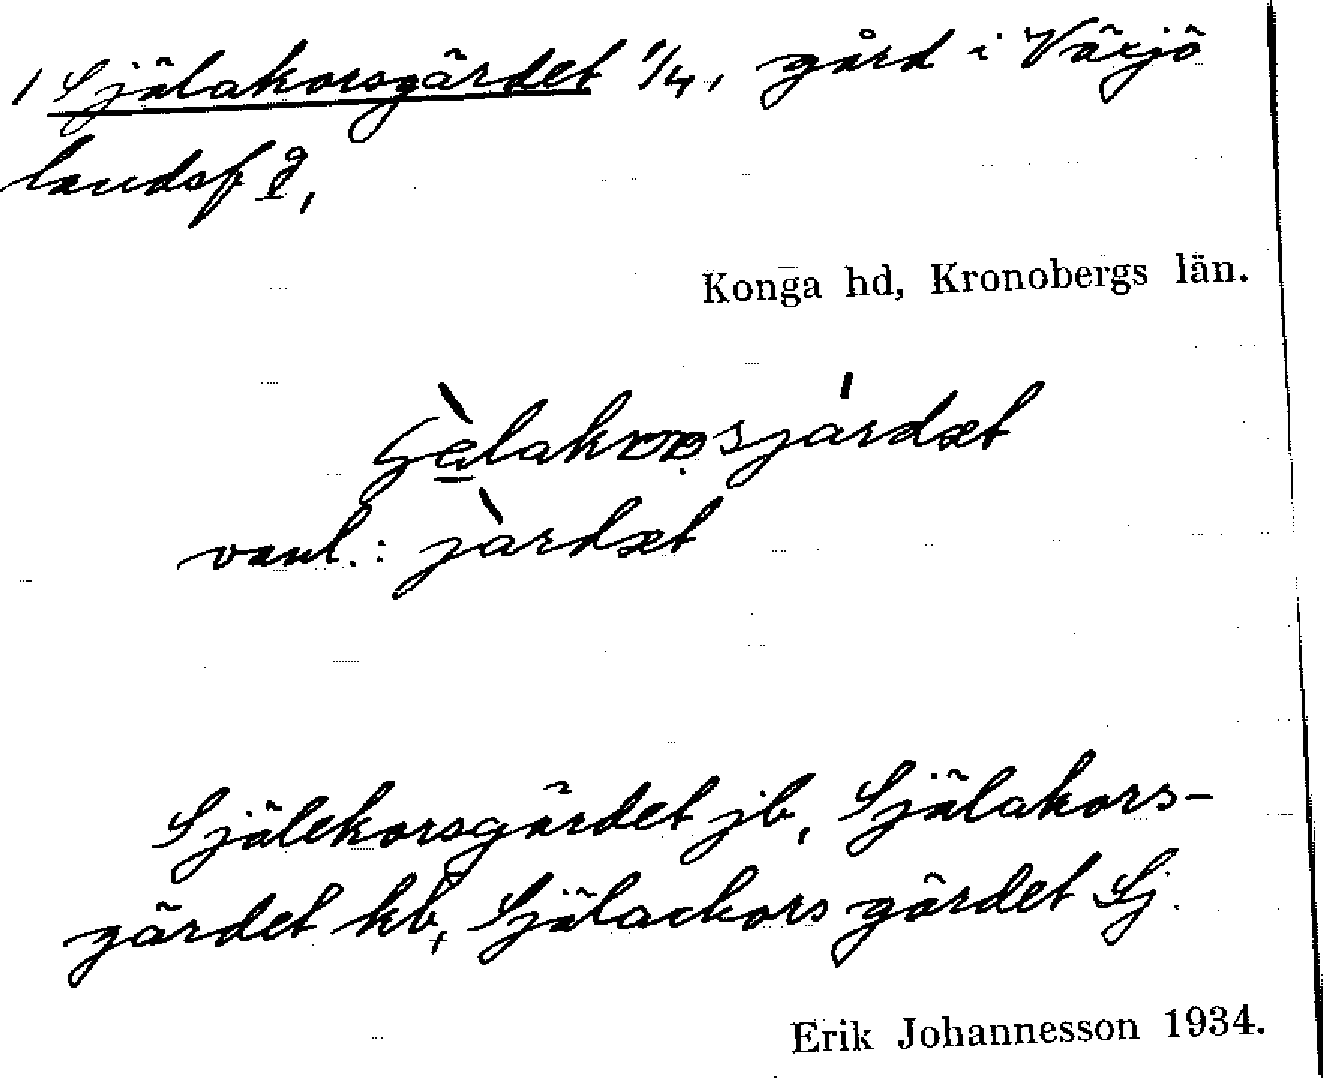 1 Själakorsgärdet 1/4, gård i Växjö
landsf g,
Konga hd, Kronobergs län.
vanl.: järdæt
Själekorsgärdet jb, Själakors-
gärdet kb, Själackors gärdet Sj.
Erik Johannesson 1934.